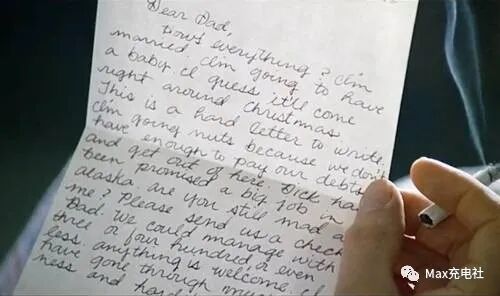 Dear Dad,
How's everything? I'm
married. I'm going to have
a baby. I guess it'll come
right around Christmas.
This is a hard letter to write.
I'm going nuts because we don't
have enough to pay our debts
and get out of here. Dick has
been promised a big job in
alaska. are you still mad at
me? Please send us a check
Dad. We could manage with
three or four hundred or even
less. anything is welcome. I
have gone through much
ness and hard
Max充电社